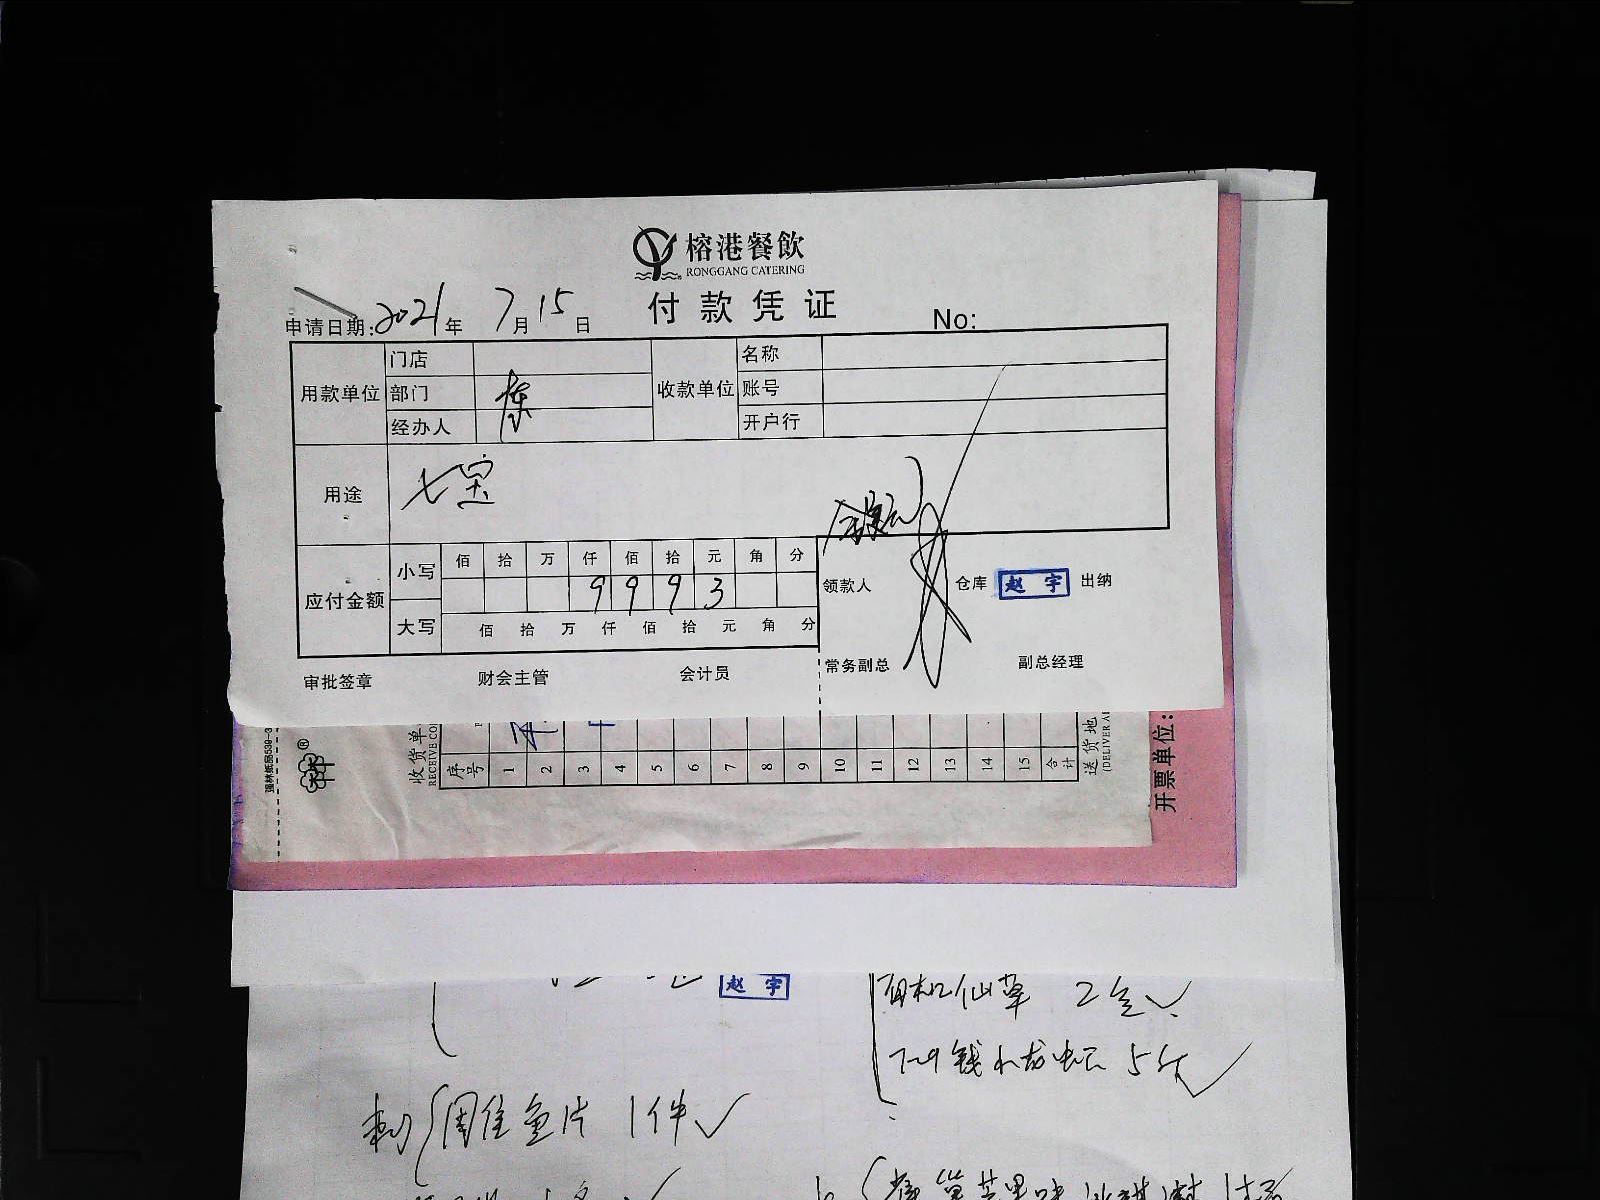 榕港餐飲
RONGGANG CATERING
付款凭证
申请日期: 2021年 7月15日 No:
用款单位 门店 收款单位 名称
部门 账号
经办人 开户行
用途 七宝
应付金额 小写 佰 拾 万 仟 佰 拾 元 角 分
9 9 9 3
大写 佰 拾 万 仟 佰 拾 元 角 分
领款人 仓库 赵宇 出纳
审批签章 财会主管 会计员 常务副总 副总经理
收货单
RECEIVE CO
序号 1 2 3 4 5 6 7 8 9 10 11 12 13 14 15 合计
送货地
(DELIVER A
开票单位:
赵宇
仙草 2
7-9钱 5斤
刺 鱼片 1件